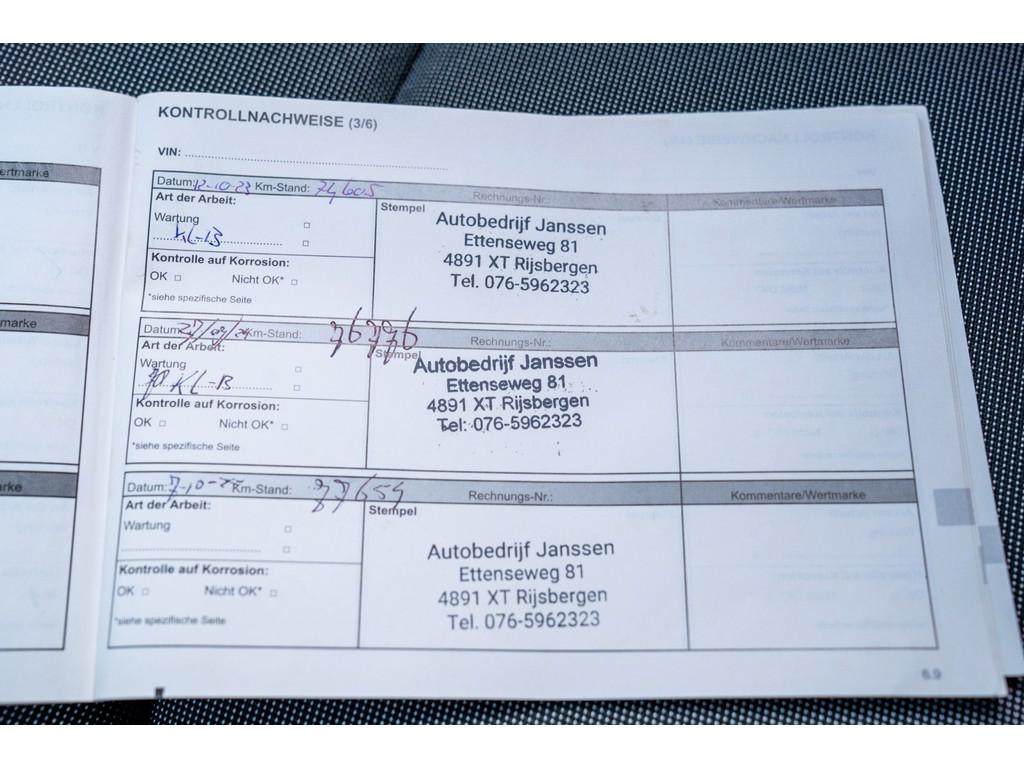 KONTROLLNACHWEISE (3/6)
VIN:
ertmarke
Datum: 12-10-23 Km-Stand: 74605 Rechnungs-Nr.: Kommentare/Wertmarke
Art der Arbeit:
Wartung
KL-B
Kontrolle auf Korrosion:
OK Nicht OK*
*siehe spezifische Seite
Stempel
Autobedrijf Janssen
Ettenseweg 81
4891 XT Rijsbergen
Tel. 076-5962323
marke
Datum: Km-Stand: 36776 Rechnungs-Nr.: Kommentare/Wertmarke
Art der Arbeit:
Wartung
KL-B
Kontrolle auf Korrosion:
OK Nicht OK*
*siehe spezifische Seite
Stempel
Autobedrijf Janssen
Ettenseweg 81
4891 XT Rijsbergen
Tel: 076-5962323
rke
Datum: Km-Stand: 37654 Rechnungs-Nr.: Kommentare/Wertmarke
Art der Arbeit:
Wartung
Kontrolle auf Korrosion:
OK Nicht OK*
*siehe spezifische Seite
Stempel
Autobedrijf Janssen
Ettenseweg 81
4891 XT Rijsbergen
Tel. 076-5962323
6.9